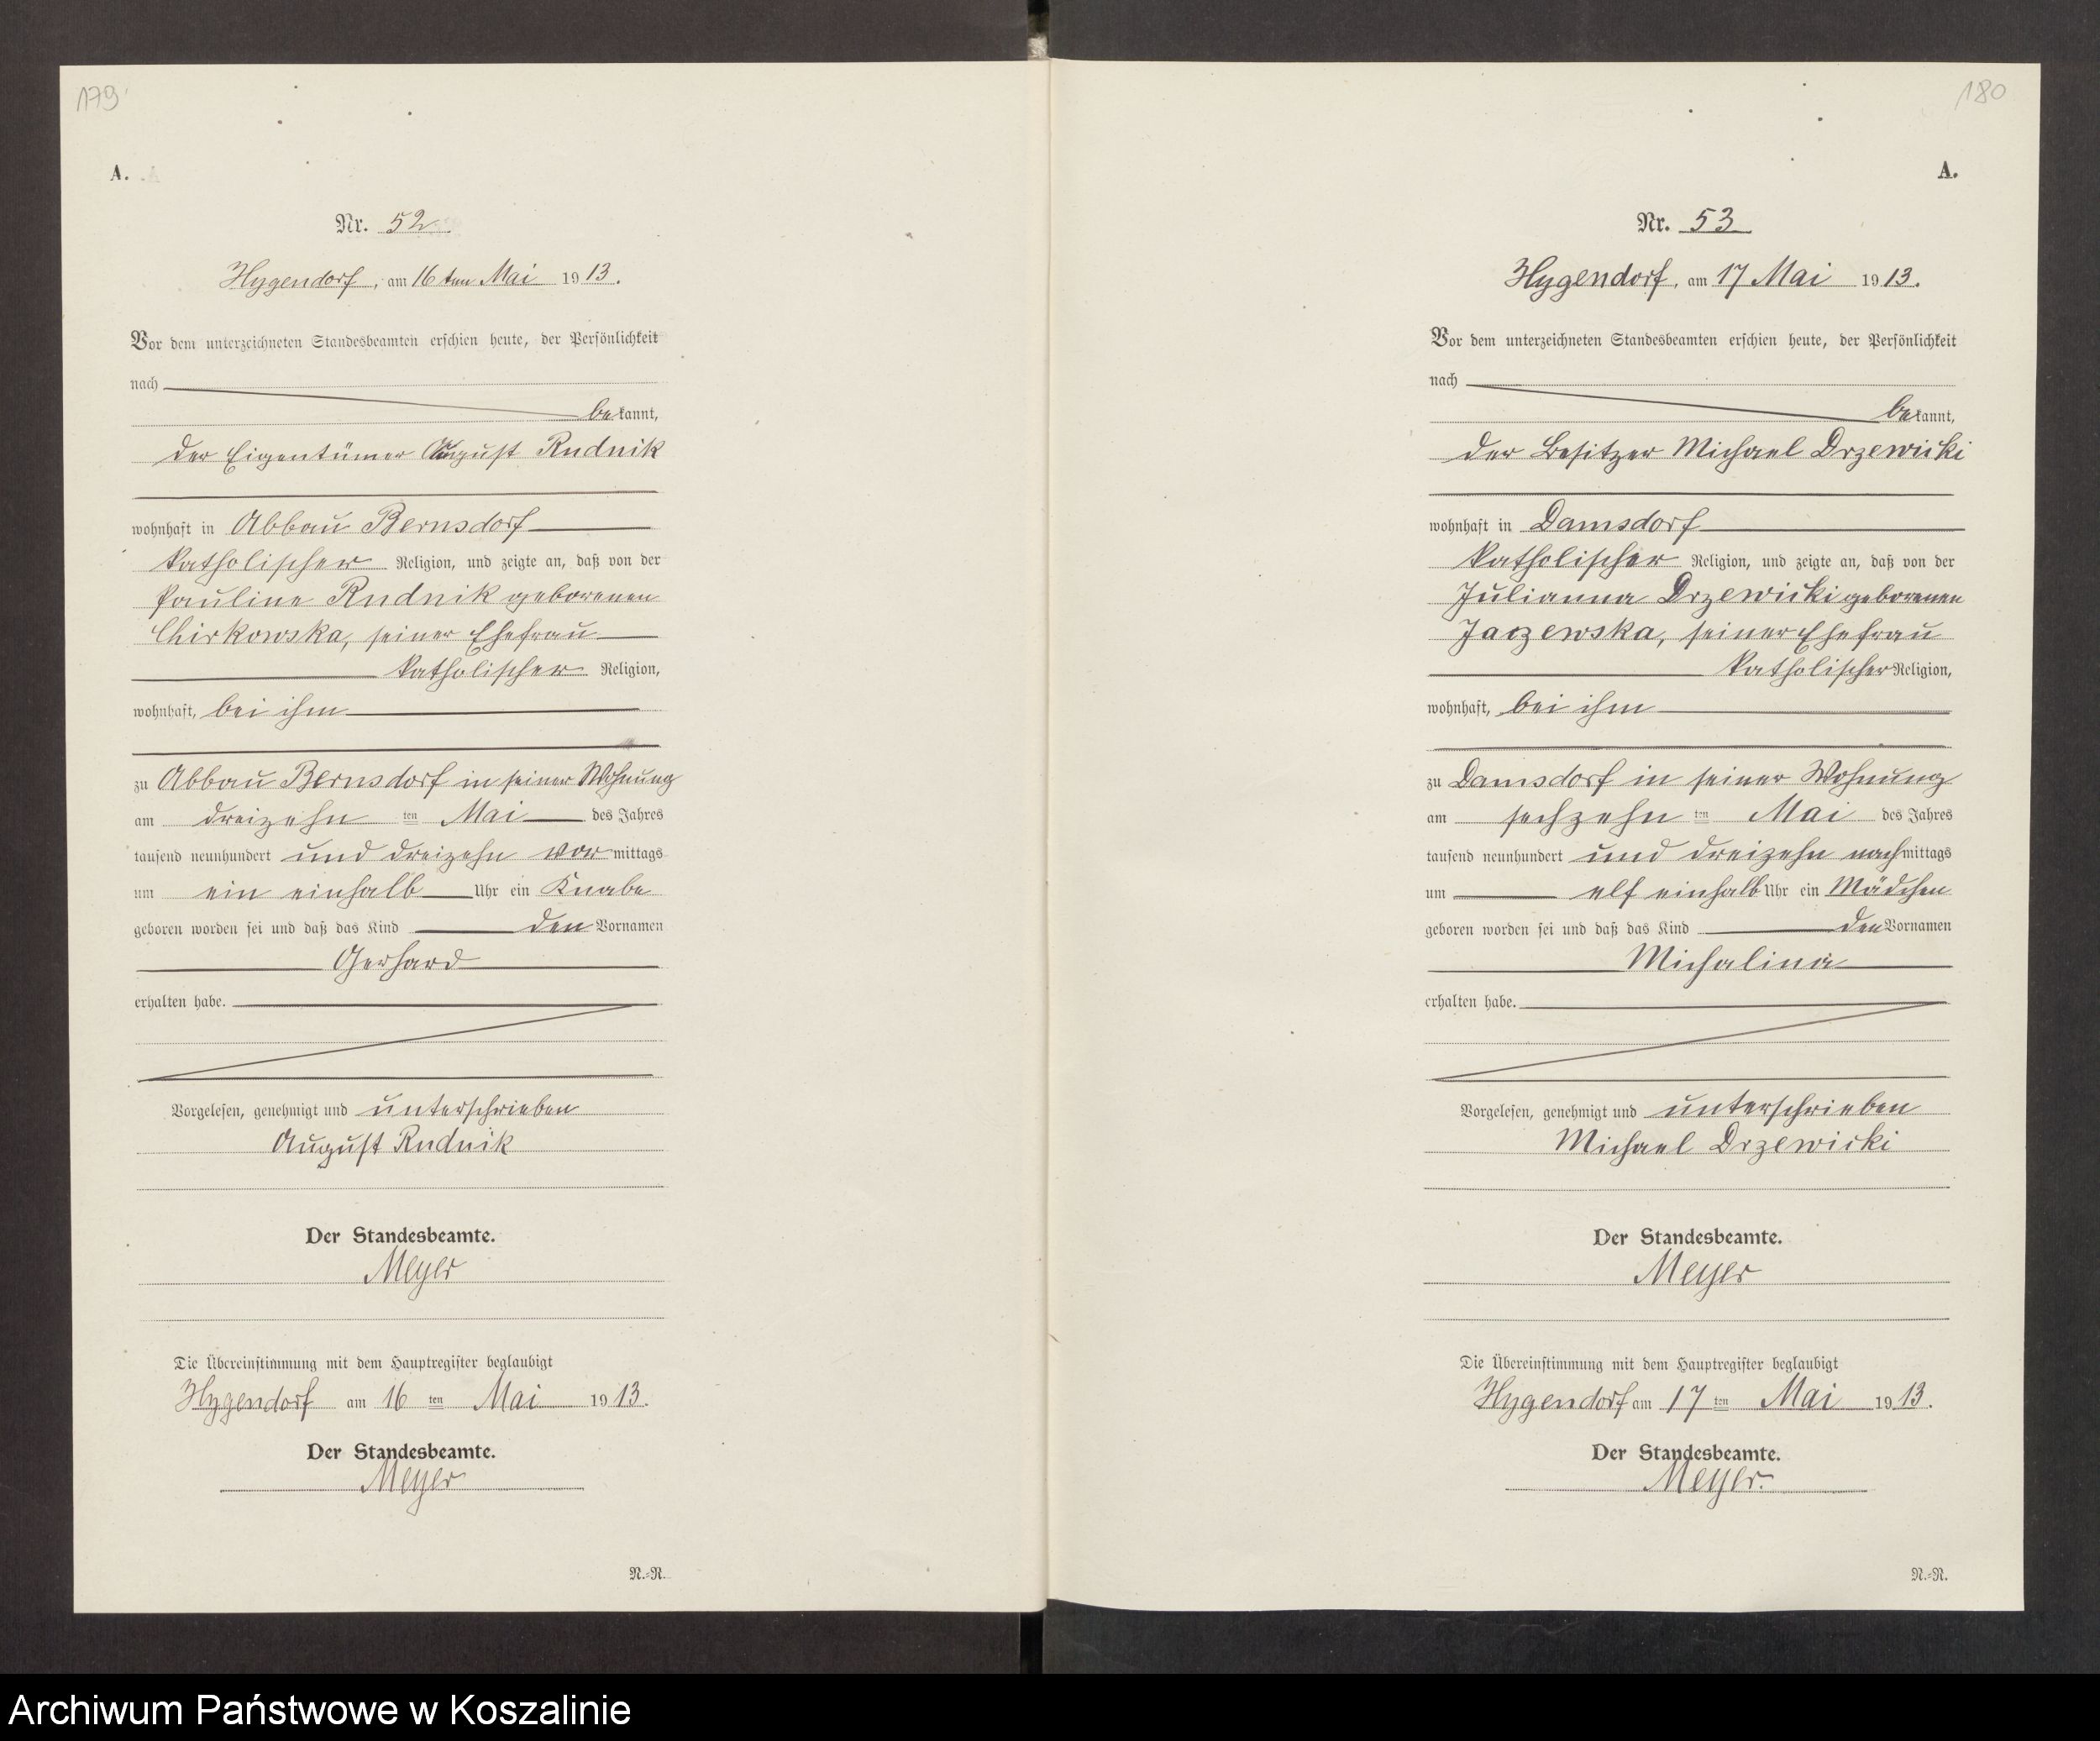 179
A.
Nr. 52
Hygendorf, am 16ten Mai 1913.
Vor dem unterzeichneten Standesbeamten erschien heute, der Persönlichkeit
nach
bekannt,
der Eigentümer August Rudnik
wohnhaft in Abbau Bernsdorf
katholischer Religion, und zeigte an, daß von der
Pauline Rudnik geborenen
Chirkowska, seiner Ehefrau
katholischer Religion,
wohnhaft, bei ihm
zu Abbau Bernsdorf in seiner Wohnung
am dreizehn ten Mai des Jahres
tausend neunhundert und dreizehn vormittags
um ein einhalb Uhr ein Knabe
geboren worden sei und daß das Kind den Vornamen
Gerhard
erhalten habe.
Vorgelesen, genehmigt und unterschrieben
August Rudnik
Der Standesbeamte.
Meyer
Die Übereinstimmung mit dem Hauptregister beglaubigt
Hygendorf am 16 ten Mai 1913.
Der Standesbeamte.
Meyer
N.=N.
180
A.
Nr. 53
Hygendorf, am 17 Mai 1913.
Vor dem unterzeichneten Standesbeamten erschien heute, der Persönlichkeit
nach
bekannt,
der Besitzer Michael Drzewicki
wohnhaft in Damsdorf
katholischer Religion, und zeigte an, daß von der
Julianna Drzewicki geborenen
Jaczewska, seiner Ehefrau
katholischer Religion,
wohnhaft, bei ihm
zu Damsdorf in seiner Wohnung
am sechzehn ten Mai des Jahres
tausend neunhundert und dreizehn nachmittags
um elf einhalb Uhr ein Mädchen
geboren worden sei und daß das Kind den Vornamen
Michalina
erhalten habe.
Vorgelesen, genehmigt und unterschrieben
Michael Drzewicki
Der Standesbeamte.
Meyer
Die Übereinstimmung mit dem Hauptregister beglaubigt
Hygendorf am 17 ten Mai 1913.
Der Standesbeamte.
Meyer.
N.=N.
Archiwum Państwowe w Koszalinie